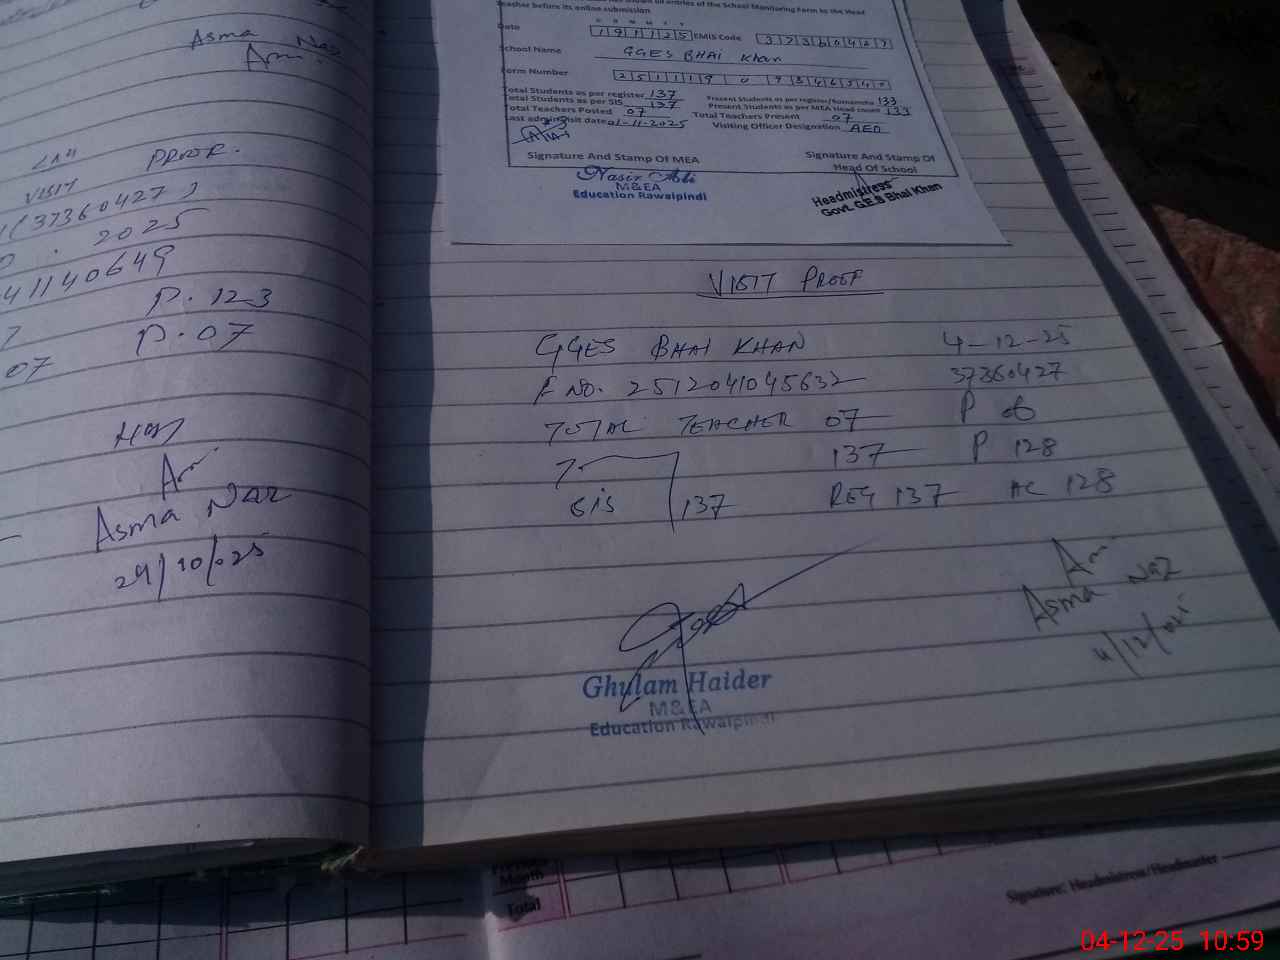 Asma Naz
VISIT PROOF.
(37360427)
2025
41140649
P. 123
07 P. 07
Asma Naz
29/10/25
all entries of the School Monitoring Form to the Head
Teacher before its online submission
D D M M Y Y
Date 1 9 1 1 2 5 EMIS Code 3 7 3 6 0 4 2 7
School Name GGES BHAI Khan
Form Number
Total Students as per register 137 Present Students as per register/Rumaincha 133
Total Students as per SIS 137 Present Students as per MEA Head count 133
Total Teachers Posted 07 Total Teachers Present 07
Last admin visit date 01-11-2025 Visiting Officer Designation AEO
Signature And Stamp Of MEA Signature And Stamp Of
Head Of School
Nasir Ali
M&EA
Education Rawalpindi
Headmistress
Govt. G.E.S Bhai Khan
VISIT PROOF
GGES BHAI KHAN 4-12-25
F NO. 2512041045632 37360427
TOTAL TEACHER 07 P 06
137 P 128
SIS 137 REG 137 AC 128
Asma Naz
4/12/025
Ghulam Haider
M&EA
Education Rawalpindi
Month
Total
Signature: Headmistress/Headmaster
04-12-25 10:59